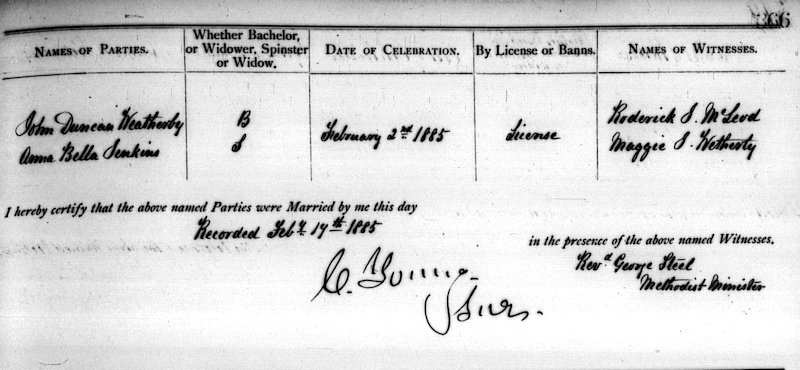 366
NAMES OF PARTIES.
Whether Bachelor, or Widower, Spinster or Widow.
DATE OF CELEBRATION.
By License or Banns.
NAMES OF WITNESSES.
John Duncan Weatherby B February 2nd 1885 License Roderick S. McLeod
Anna Bella Jenkins S Maggie S. Wetherby
I hereby certify that the above named Parties were Married by me this day
Recorded Feby 17th 1885
in the presence of the above named Witnesses.
Revd George Steel
Methodist Minister
C. Young